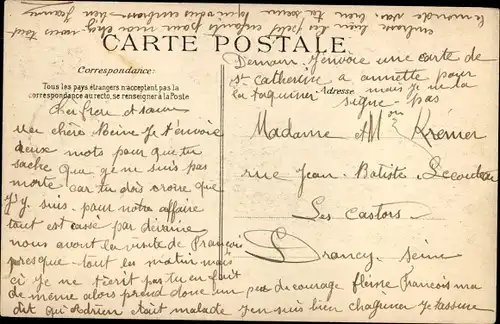 le monde va bien ta seur Jeanne
embrasse bien les petits enfants pour moi mon cher
CARTE POSTALE
Demain J'envoie une carte de
st catherine a annette pour
la taquiner mais je ne la
signe pas
Correspondance:
Adresse
Tous les pays étrangers n'acceptent pas la
correspondance au recto, se renseigner à la Poste
Madame et Mr Krémer
rue Jean-Batiste Lecouteu
Les Castors
Drancy - Seine
et soeur
Ma chère Reine Je t'envoie
deux mots pour que tu
sache que je ne suis pas
morte car tu dois croire que
j'y suis - pour notre affaire
tout est cassé par deveine
nous avont la visite de François
presque - tout les matin mais
si je ne t'écrit pas tu en fait
de même alors prend donc un peu de courage Reine François ma
dit qu'Adrien était malade J'en suis bien chagriner je t'assure